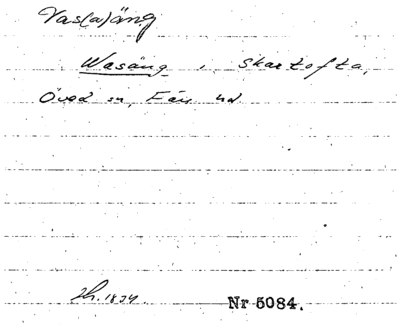 Vas(a)äng
Wasäng, Skartofta,
Öved sn, Färs hd
Jh. 1834. Nr 5084.